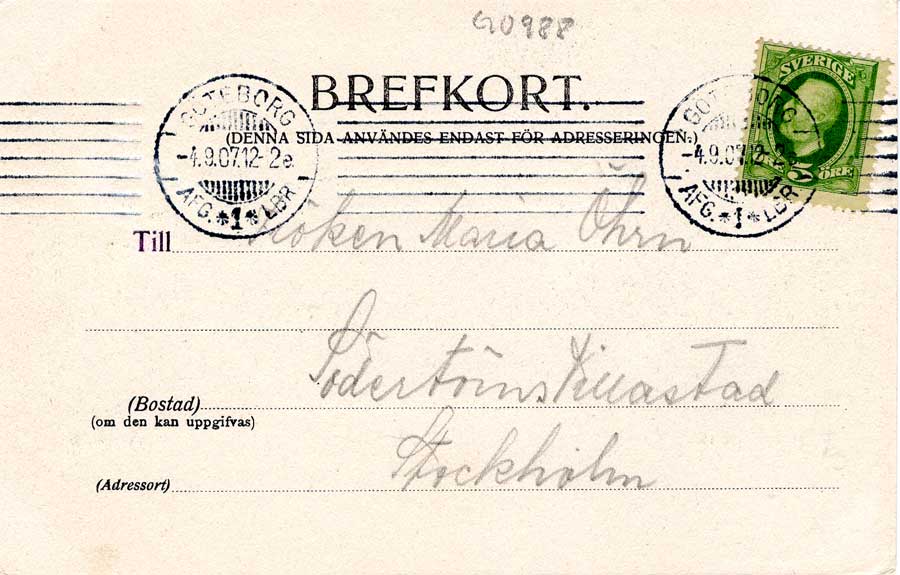 G0988
SVERIGE
5 ÖRE
BREFKORT.
(DENNA SIDA ANVÄNDES ENDAST FÖR ADRESSERINGEN.)
GÖTEBORG
-4.9.07.12-2e.
AFG. *1* LBR
GÖTEBORG
-4.9.07.12-2e.
AFG. *1* LBR
Till Fröken Maria Öhrn
(Bostad) Södertörns Villastad
(om den kan uppgifvas)
(Adressort) Stockholm